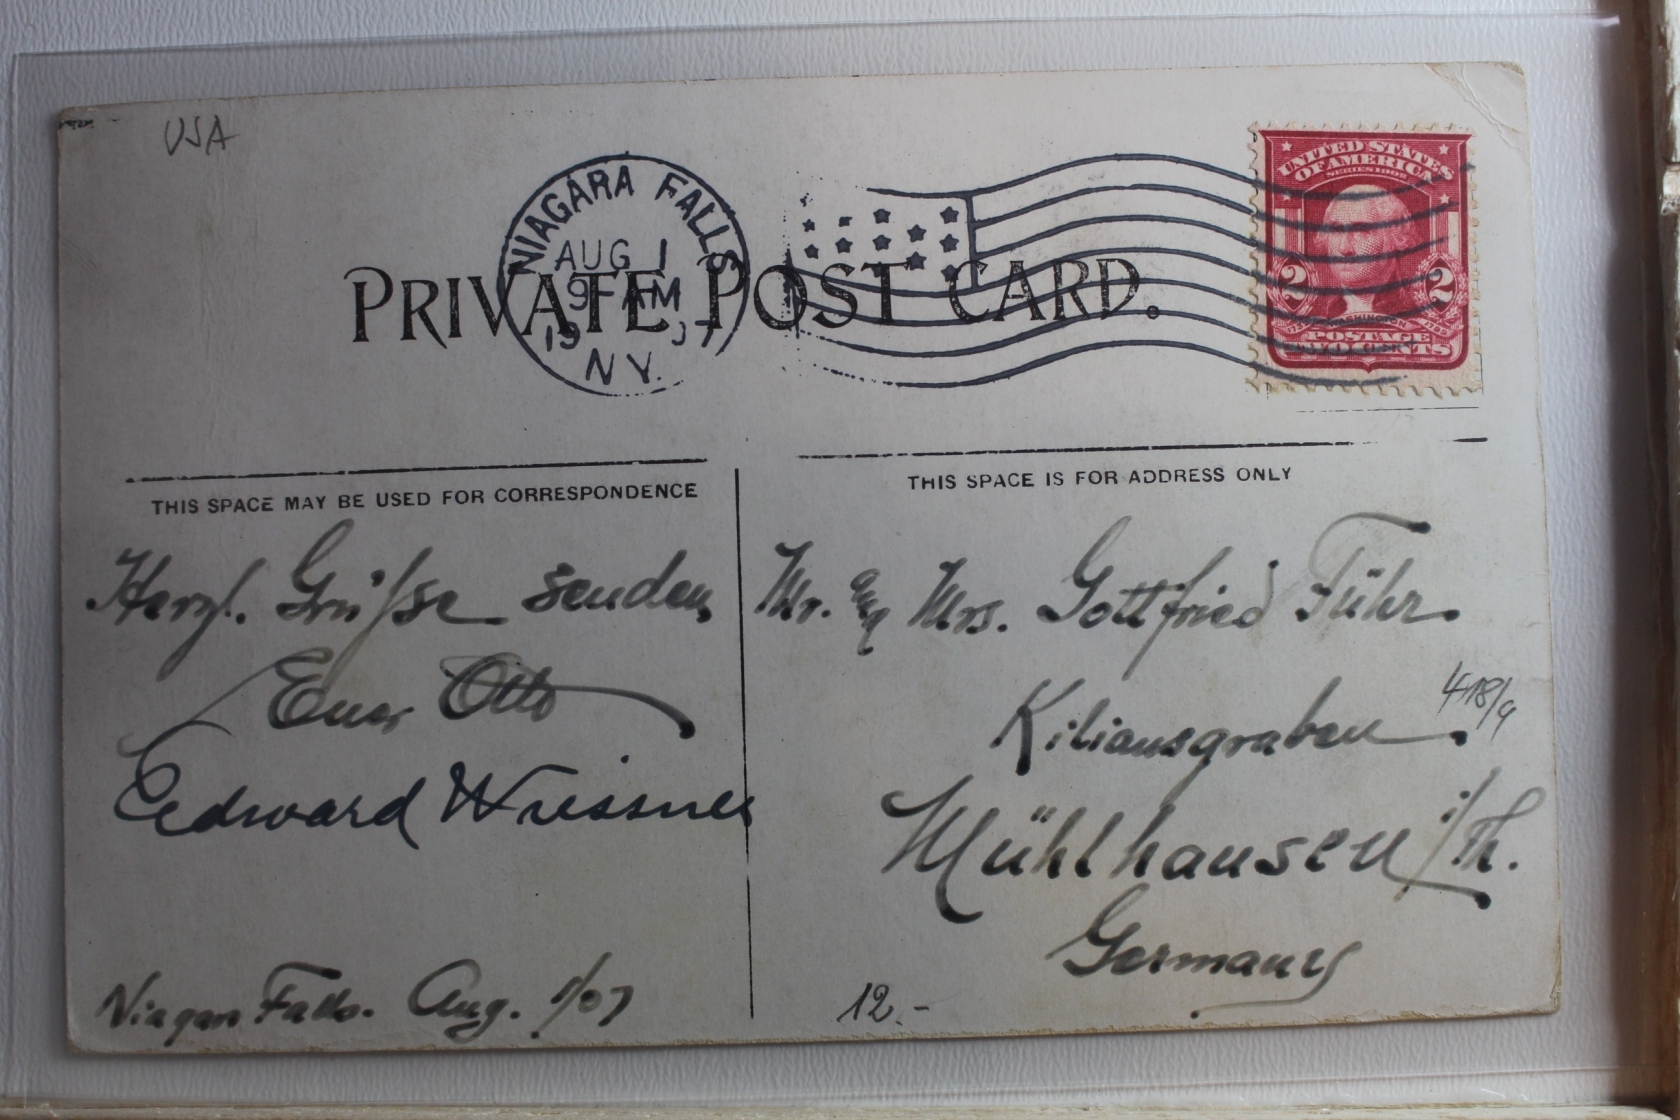 USA
NIAGARA FALLS
AUG 1
9 - AM
N.Y.
UNITED STATES
OF AMERICA
SERIES 1902
2 2
WASHINGTON
POSTAGE
TWO CENTS
PRIVATE POST CARD.
THIS SPACE MAY BE USED FOR CORRESPONDENCE
Herzl. Grüsse senden
Euer Otto
Edward Wiessner
Niagara Falls. Aug. 1/07
THIS SPACE IS FOR ADDRESS ONLY
Mr. & Mrs. Gottfried Führ.
Kiliansgraben.
Mühlhausen i/Th.
Germany
12.-